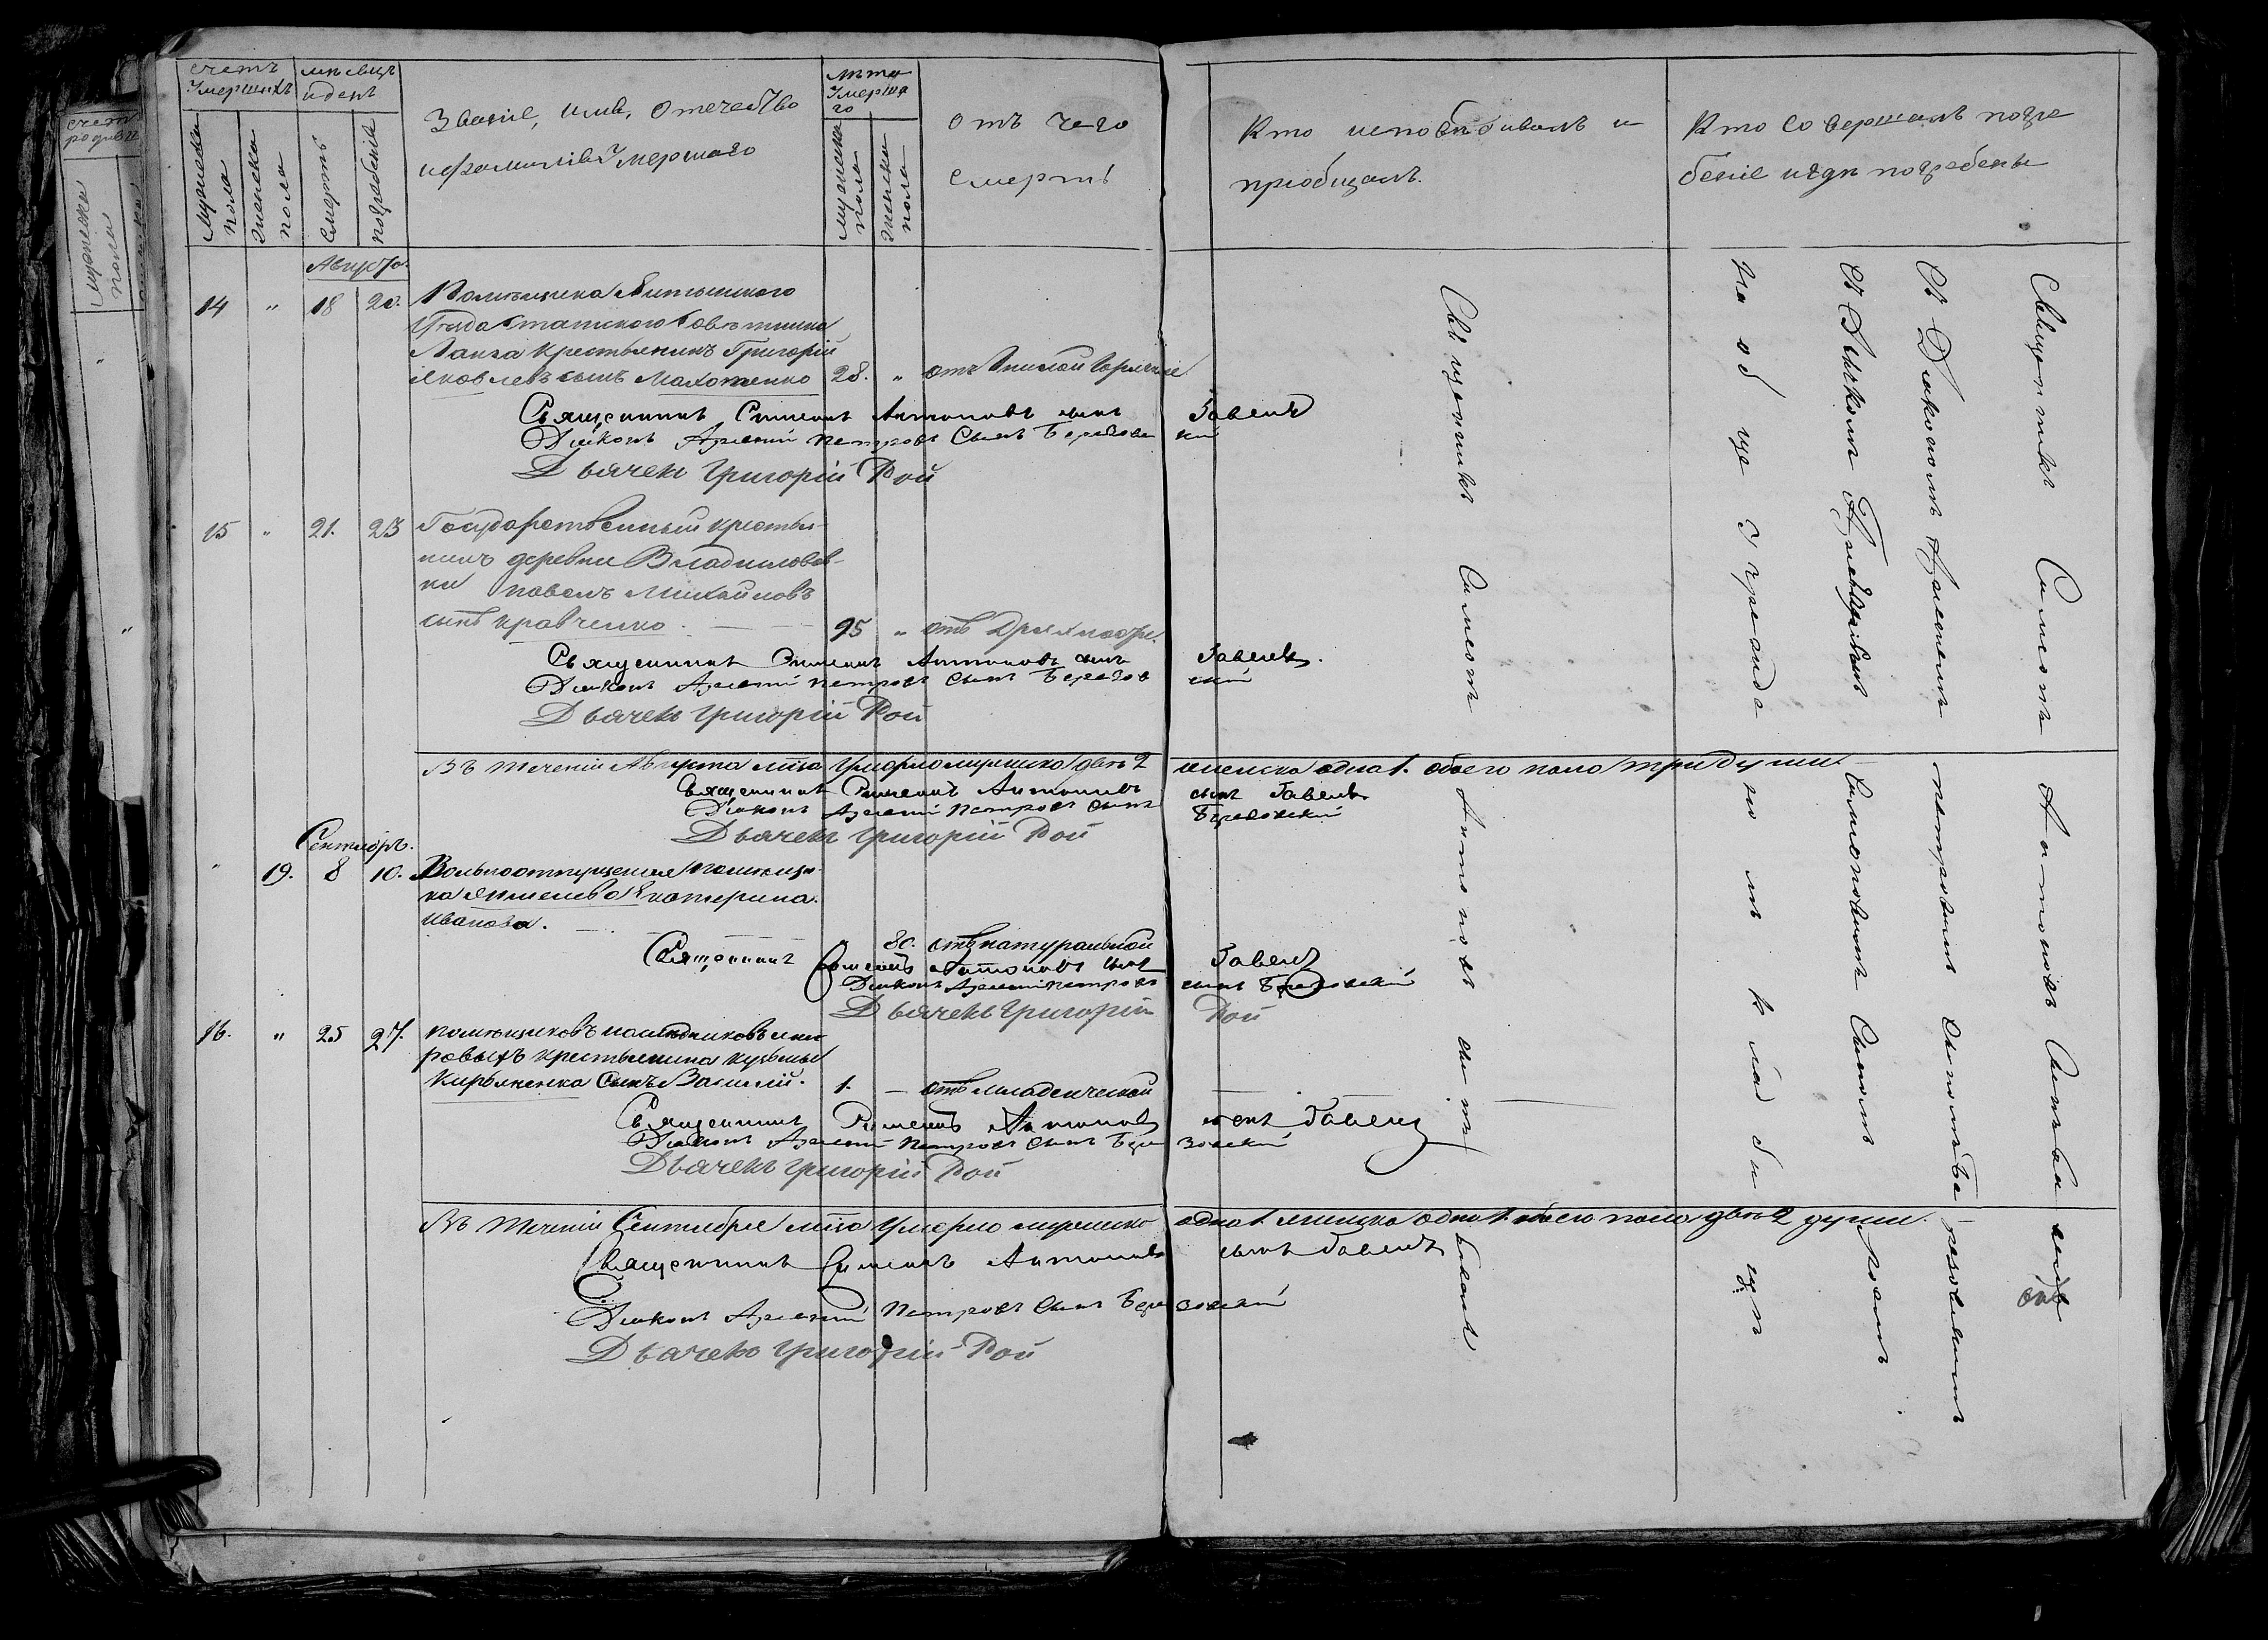 счетъ умершихъ
мѣсяцъ и день
Званіе, имя, отечество
и фамилія умершаго
лѣта умершаго
отъ чего
смерть
Кто исповѣдывалъ и
пріобщалъ.
Кто совершалъ погре
беніе и гдѣ погребены
мужеска пола
женска пола
смерть
погребенія
мужеска пола
женска пола
счетъ
мужеска
пола
Августа
14 " 18 20. Помѣщика
Уѣзда Статского Совѣтника
Ланга крестьянинъ Григорій
Яковлевъ сынъ Махотенко 28. " отъ гнилой горячки
Священникъ Симеонъ Антоновъ сынъ Гавелъ
Діаконъ Арсеній Петровъ Сынъ Березовскій
Дьячекъ Григорій Рой
15 " 21. 23 Государственный крестья-
нинъ деревни
ки Павелъ Михайловъ
сынъ Кравченко. 95 " отъ дряхлости.
Священникъ Симеонъ Антоновъ сынъ Гавелъ.
Діаконъ Арсеній Петровъ Сынъ Березовскій
Дьячекъ Григорій Рой
Въ теченіи Августа м-ца умерло мужеска два 2 женска одна 1. обоего пола три души.
Священникъ Симеонъ Антоновъ сынъ Гавелъ
Діаконъ Арсеній Петровъ Сынъ Березовскій
Дьячекъ Григорій Рой
Сентябрь.
" 19. 8 10. Вольноотпущенная помѣщи-
ка Екатерина
Иванова. 80. отъ натуральной
Священникъ Симеонъ Антоновъ сынъ Гавелъ
Діаконъ Арсеній Петровъ сынъ Березовскій
Дьячекъ Григорій Рой
16. " 25 27. помѣщиковъ наслѣдниковъ
ровыхъ крестьянина Кузьмы
Кирьяненка сынъ Василій. 1. — отъ младенческой
Священникъ Симеонъ Антоновъ сынъ Гавелъ
Діаконъ Арсеній Петровъ Сынъ Березовскій
Дьячекъ Григорій Рой
Въ теченіи Сентября м-ца умерло мужеска одна 1. женска одна 1. обоего пола двѣ 2 души.
Священникъ Симеонъ Антоновъ сынъ Гавелъ
Діаконъ Арсеній Петровъ Сынъ Березовскій
Дьячекъ Григорій Рой
Священникъ Симеонъ Антоновъ сынъ
Священникъ Симеонъ Антоновъ
Съ Діакономъ Арсеніемъ Петровымъ
Съ Дьячкомъ
На обще
номъ кладби
щѣ